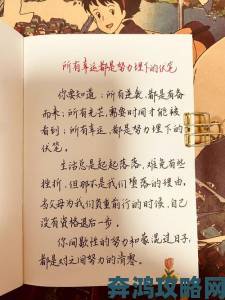 所有幸运都是努力埋下的伏笔
你要知道：所有逆袭，都是有备
而来；所有光芒，需要时间才能被
看到；所有幸运，都是努力埋下的
伏笔。
生活总是起起落落，难免有些
挫折，但那不是我们堕落的理由，
当父母为我们负重前行的时候，自己
没有资格退后一步。
你间歇性的努力和蒙混过日子，
都是对之前努力的清零。
奔鸿攻略网